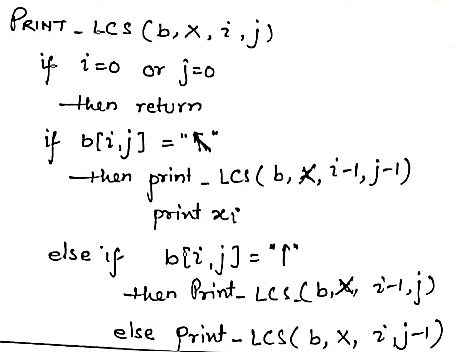 PRINT_LCS (b, X, i, j)
if i=0 or j=0
then return
if b[i,j] = "↖"
then print_LCS( b, X, i-1, j-1)
print xi
else if b[i,j] = "↑"
then Print_LCS(b, X, i-1, j)
else Print-LCS( b, X, i, j-1)